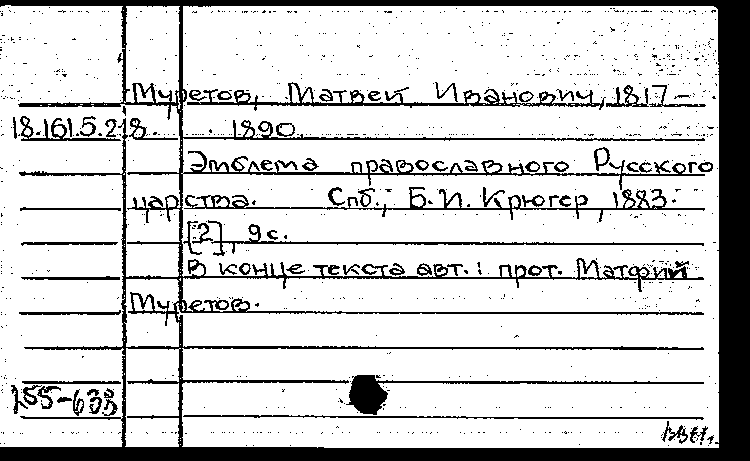 Муретов, Матвей Иванович, 1817-
18.161.5.218. 1890.
Эмблема православного Русского
царства. Спб., Б.И. Крюгер, 1883.
[2], 9с.
В конце текста авт.: прот. Матфий
Муретов.